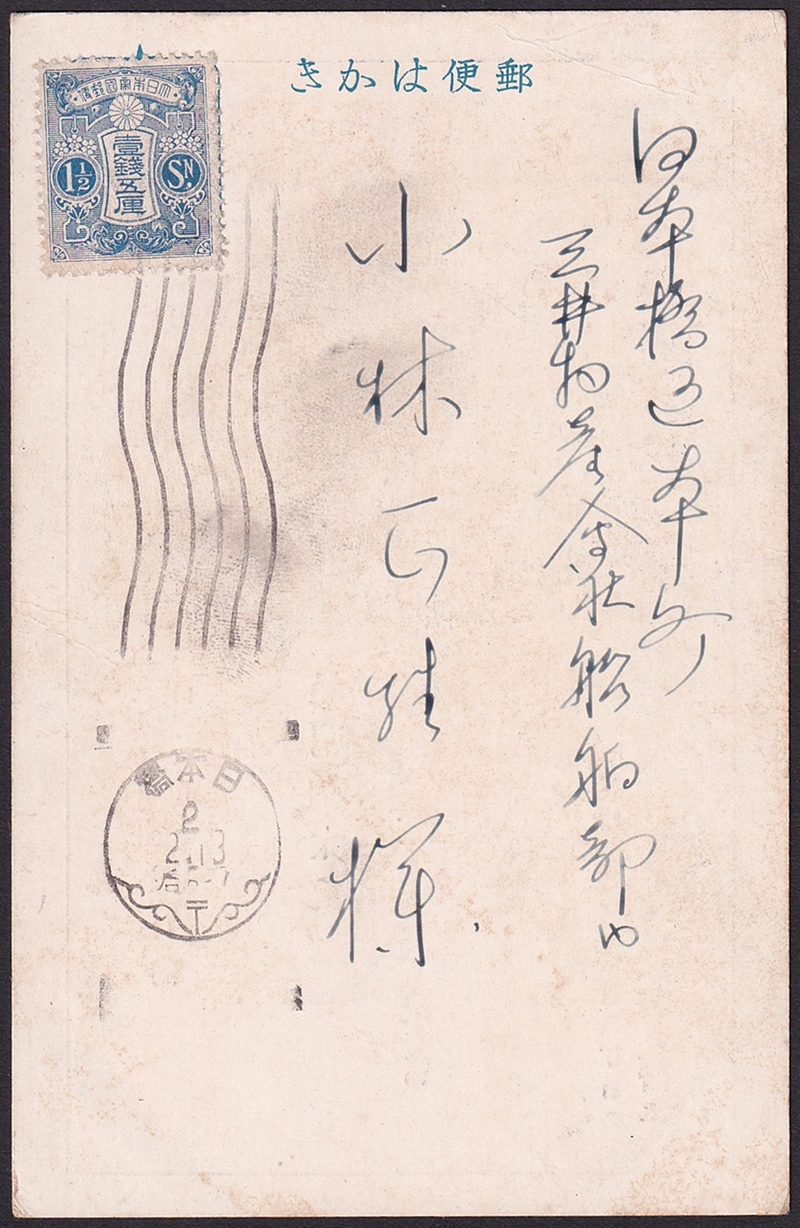 郵便はかき
日本橋区本町
三井物産会社船舶部内
小林正雄様
大日本帝国郵便
壹錢五厘
1½ Sn.
日本橋
2
2.13
后5-7
〒